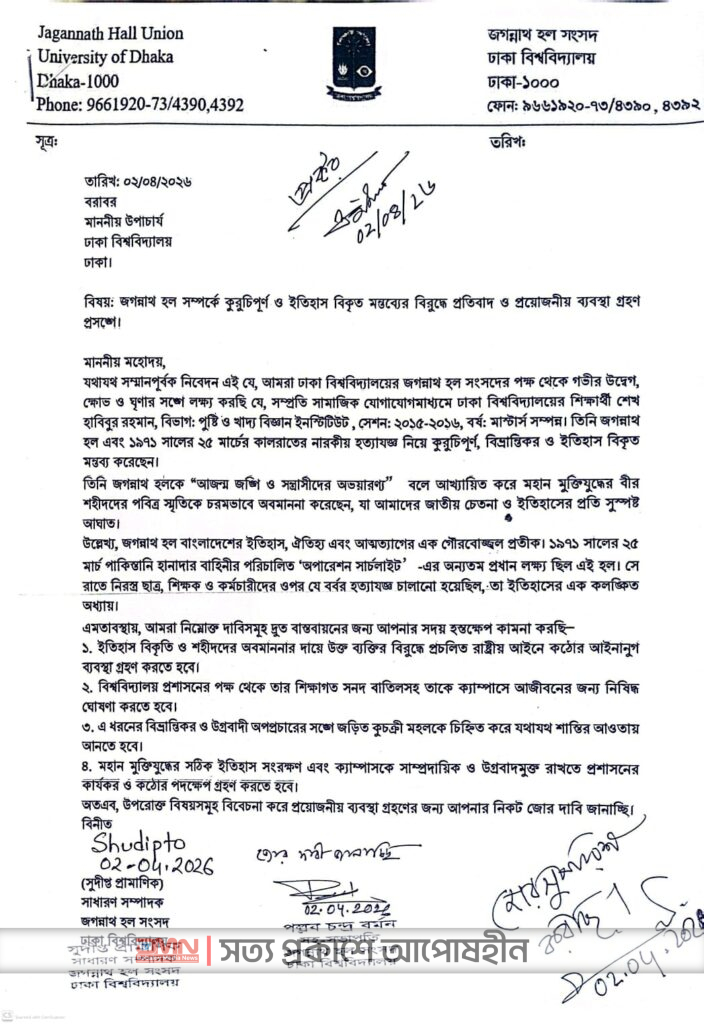 Jagannath Hall Union
University of Dhaka
Dhaka-1000
Phone: 9661920-73/4390,4392
জগন্নাথ হল সংসদ
ঢাকা বিশ্ববিদ্যালয়
ঢাকা-১০০০
ফোন: ৯৬৬১৯২০-৭৩/৪৩৯০, ৪৩৯২
সূত্র:
তরিখ:
প্রক্টর
02/08/26
তারিখ: ০২/০৪/২০২৬
বরাবর
মাননীয় উপাচার্য
ঢাকা বিশ্ববিদ্যালয়
ঢাকা।
বিষয়: জগন্নাথ হল সম্পর্কে কুরুচিপূর্ণ ও ইতিহাস বিকৃত মন্তব্যের বিরুদ্ধে প্রতিবাদ ও প্রয়োজনীয় ব্যবস্থা গ্রহণ
প্রসঙ্গে।
মাননীয় মহোদয়,
যথাযথ সম্মানপূর্বক নিবেদন এই যে, আমরা ঢাকা বিশ্ববিদ্যালয়ের জগন্নাথ হল সংসদের পক্ষ থেকে গভীর উদ্বেগ,
ক্ষোভ ও ঘৃণার সঙ্গে লক্ষ্য করছি যে, সম্প্রতি সামাজিক যোগাযোগমাধ্যমে ঢাকা বিশ্ববিদ্যালয়ের শিক্ষার্থী শেখ
হাবিবুর রহমান, বিভাগ: পুষ্টি ও খাদ্য বিজ্ঞান ইনস্টিটিউট , সেশন: ২০১৫-২০১৬, বর্ষ: মাস্টার্স সম্পন্ন। তিনি জগন্নাথ
হল এবং ১৯৭১ সালের ২৫ মার্চের কালরাতের নারকীয় হত্যাযজ্ঞ নিয়ে কুরুচিপূর্ণ, বিভ্রান্তিকর ও ইতিহাস বিকৃত
মন্তব্য করেছেন।
তিনি জগন্নাথ হলকে “আজন্ম জঙ্গি ও সন্ত্রাসীদের অভয়ারণ্য” বলে আখ্যায়িত করে মহান মুক্তিযুদ্ধের বীর
শহীদদের পবিত্র স্মৃতিকে চরমভাবে অবমাননা করেছেন, যা আমাদের জাতীয় চেতনা ও ইতিহাসের প্রতি সুস্পষ্ট
আঘাত।
উল্লেখ্য, জগন্নাথ হল বাংলাদেশের ইতিহাস, ঐতিহ্য এবং আত্মত্যাগের এক গৌরবোজ্জ্বল প্রতীক। ১৯৭১ সালের ২৫
মার্চ পাকিস্তানি হানাদার বাহিনীর পরিচালিত ‘অপারেশন সার্চলাইট’ -এর অন্যতম প্রধান লক্ষ্য ছিল এই হল। সে
রাতে নিরস্ত্র ছাত্র, শিক্ষক ও কর্মচারীদের ওপর যে বর্বর হত্যাযজ্ঞ চালানো হয়েছিল, তা ইতিহাসের এক কলঙ্কিত
অধ্যায়।
এমতাবস্থায়, আমরা নিম্নোক্ত দাবিসমূহ দ্রুত বাস্তবায়নের জন্য আপনার সদয় হস্তক্ষেপ কামনা করছি–
১. ইতিহাস বিকৃতি ও শহীদদের অবমাননার দায়ে উক্ত ব্যক্তির বিরুদ্ধে প্রচলিত রাষ্ট্রীয় আইনে কঠোর আইনানুগ
ব্যবস্থা গ্রহণ করতে হবে।
২. বিশ্ববিদ্যালয় প্রশাসনের পক্ষ থেকে তার শিক্ষাগত সনদ বাতিলসহ তাকে ক্যাম্পাসে আজীবনের জন্য নিষিদ্ধ
ঘোষণা করতে হবে।
৩. এ ধরনের বিভ্রান্তিকর ও উগ্রবাদী অপপ্রচারের সঙ্গে জড়িত কুচক্রী মহলকে চিহ্নিত করে যথাযথ শাস্তির আওতায়
আনতে হবে।
৪. মহান মুক্তিযুদ্ধের সঠিক ইতিহাস সংরক্ষণ এবং ক্যাম্পাসকে সাম্প্রদায়িক ও উগ্রবাদমুক্ত রাখতে প্রশাসনের
কার্যকর ও কঠোর পদক্ষেপ গ্রহণ করতে হবে।
অতএব, উপরোক্ত বিষয়সমূহ বিবেচনা করে প্রয়োজনীয় ব্যবস্থা গ্রহণের জন্য আপনার নিকট জোর দাবি জানাচ্ছি।
বিনীত
Shudipto
02-04.2026
(সুদীপ্ত প্রামাণিক)
সাধারণ সম্পাদক
জগন্নাথ হল সংসদ
ঢাকা বিশ্ববিদ্যালয়
সুদীপ্ত প্রামাণিক
সাধারণ সম্পাদক
জগন্নাথ হল সংসদ
ঢাকা বিশ্ববিদ্যালয়
জোর দাবী জানাচ্ছি
02.04.2026
পল্লব চন্দ্র বর্মন
ঢাকা বিশ্ববিদ্যালয়
জোর সুপারিশ
করছি।
02.04.2026
সত্য প্রকাশে আপোষহীন